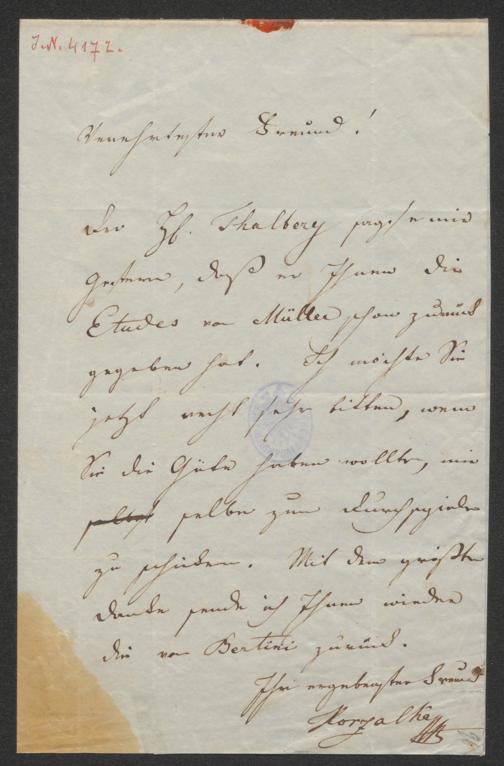 J.N. 4172.
Verehrtester Freund!
Der H. Thalberg sagte mir
gestern, daß er Ihnen die
Etudes von Müller schon zurück
gegeben hat. Ich möchte Sie
jetzt recht sehr bitten, wenn
Sie die Güte haben wollten, mir
selbst selbe zum Durchspielen
zu schicken. Mit dem größten
Danke sende ich Ihnen wieder
die von Bertini zurück.
Ihr ergebenster Freund